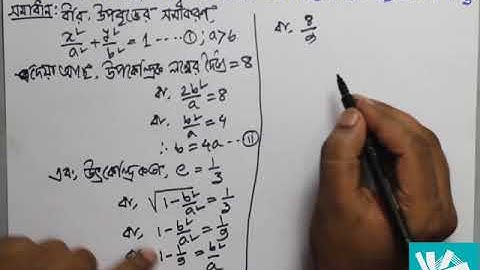 সমাধান: ধরি, উপবৃত্তের সমীকরণ,
x²/a² + y²/b² = 1 ---- ① ; a>b
দেয়া আছে, উপকেন্দ্রিক লম্বের দৈর্ঘ্য = 8
বা, 2b²/a = 8
বা, b²/a = 4
∴ b = 4a --- ⑪
এবং, উৎকেন্দ্রিকতা, e = 1/3
বা, √(1 - b²/a²) = 1/3
বা, 1 - b²/a² = 1/9
1 - 1/9 = b²/a
বা, 8/9